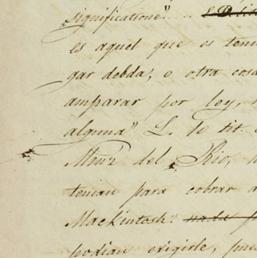 significatione"..
es aquel que es teni
gar debda, o otra cosa
amparar por ley,
alguna" L. 1e tit.
Mtnz del Rio,
tenian para cobrar a
Mackintosh:
podian exigirle, pue